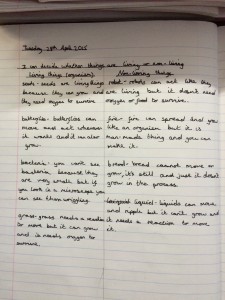 Tuesday 28th April 2015
I can decide whether things are living or non-living
Living things (organism)
seeds - seeds are living things
because they can grow and
they need oxygen to survive.
butterflies - butterflies can
move and act whenever
it wants and it can also
grow.
bacteria - you can't see
bacteria because they
are very small but if
you look in a microscope you
can see them wriggling.
grass - grass needs a reaction
to move but it can grow
and is needs oxygen to
survive.
Non-living things
robot - robots can act like they
are living but it doesn't need
oxygen or food to survive.
fire - fire can spread and grow
like an organism but it is
man-made thing and you can
make it.
bread - bread cannot move or
grow, it's still and just it doesn't
grow in the process.
liquid - liquids can move
and ripple but it can't grow and
it needs a reaction to move
it.